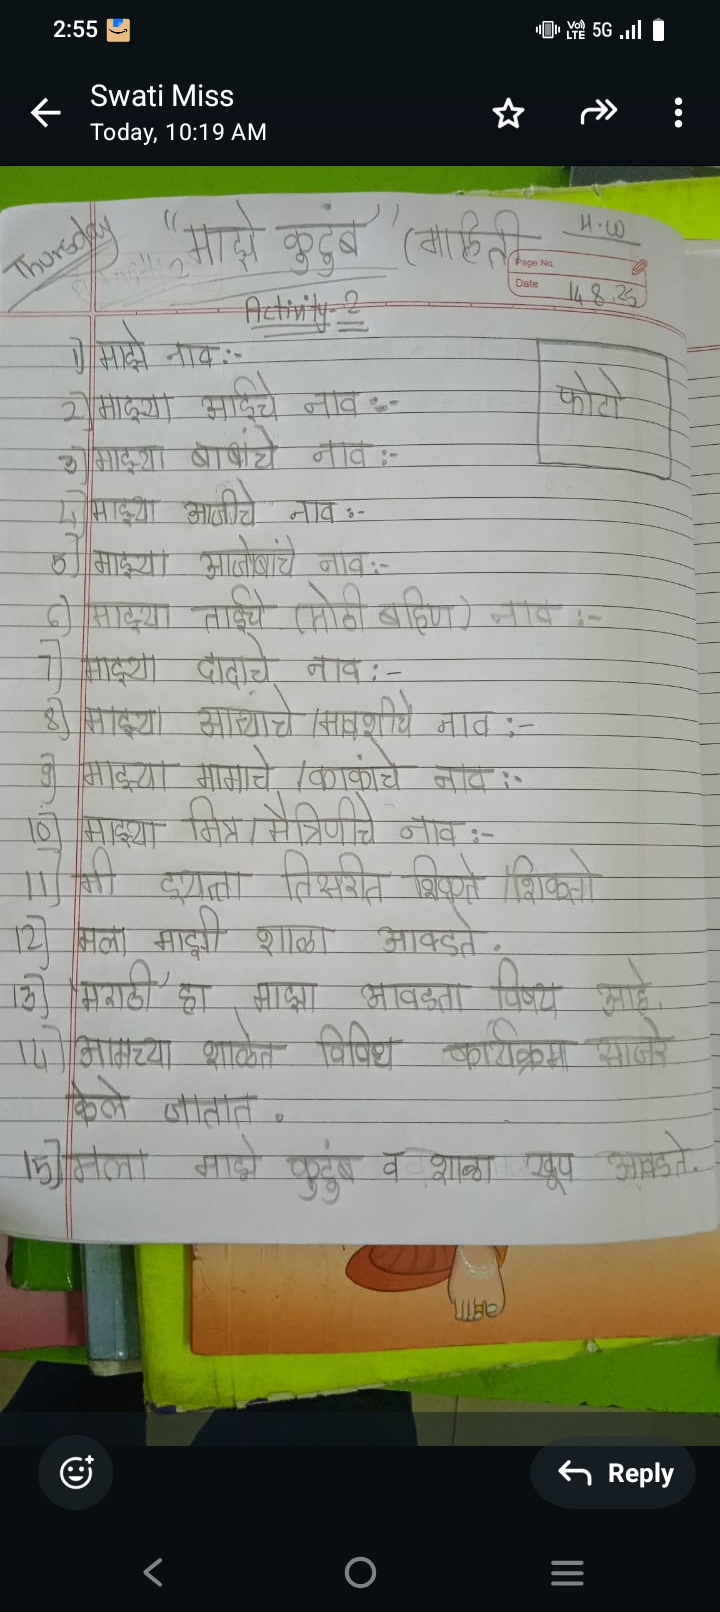 2:55
Vo) LTE 5G
Swati Miss
Today, 10:19 AM
Thursday
"माझे कुटुंब" (माहिती
H.W
Page No.
Date 14.8.25
Activity-2
1) माझे नाव:-
फोटो
2) माझ्या आईचे नाव :-
3) माझ्या बाबांचे नाव :-
4) माझ्या आजीचे नाव :-
5) माझ्या आजोबांचे नाव:-
6) माझ्या ताईचे (मोठी बहिण) नाव :-
7) माझ्या दादाचे नाव :-
8) माझ्या आत्याचे /मावशीचे नाव :-
9) माझ्या मामाचे /काकांचे नाव :-
10) माझ्या मित्र/मैत्रिणीचे नाव :-
11) मी इयत्ता तिसरीत शिकते /शिकतो
12) मला माझी शाळा आवडते.
13) 'मराठी' हा माझा आवडता विषय आहे.
14) आमच्या शाळेत विविध कार्यक्रम साजरे
केले जातात.
15) मला माझे कुटुंब व शाळा खूप आवडते.
Reply